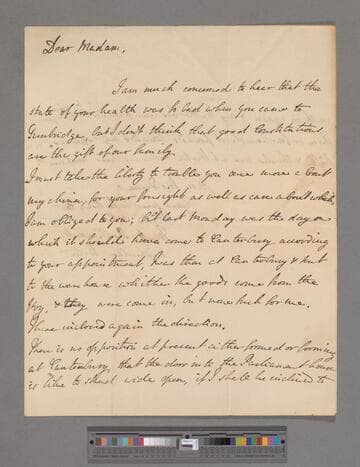 Dear Madam,
I am much concerned to hear that the
state of your health was so bad when you came to
Tunbridge, but I don't think that good Constitutions
are the gift of our family.
I must take the liberty to trouble you once more about
my china, for your foresight as well as care about which,
I am obliged to you; last monday was the day on
which it should have come to Canterbury according
to your appointment, I was then at Canterbury & sent
to the warehouse whither the goods come from the
Hoy, & they were come in, but none such for me.
I have inclosed again the direction.
There is no opposition at present either formed or forming
at Canterbury, that the door into the Parliament house
is like to stand wide open, if I shall be inclined to